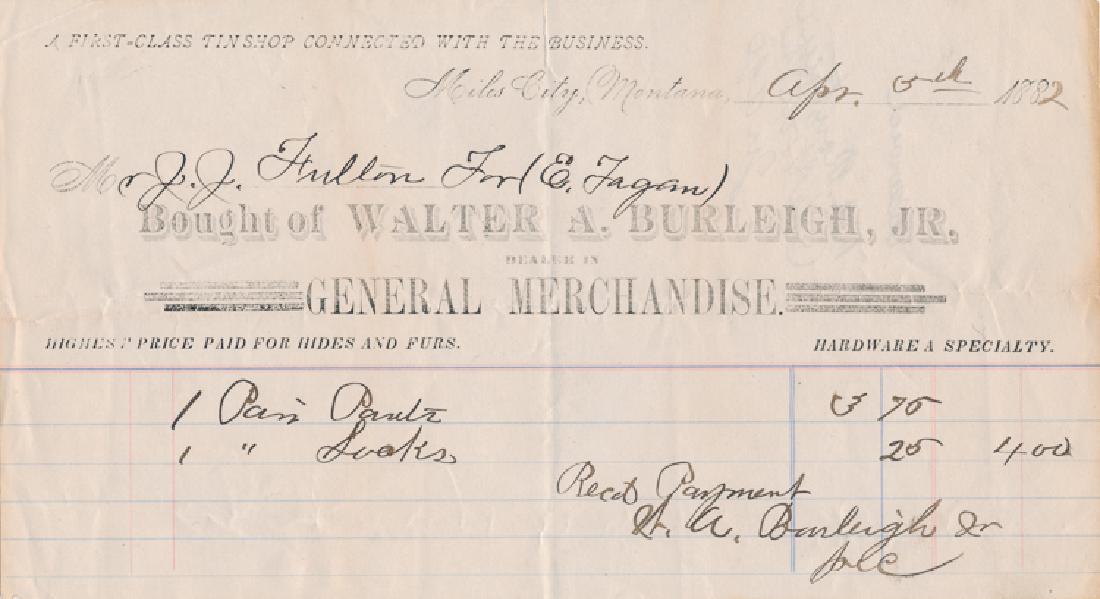 A FIRST-CLASS TINSHOP CONNECTED WITH THE BUSINESS.
Miles City, Montana, Apr. 5th 1882
Mr J. J. Fulton For (E. Fagan)
Bought of WALTER A. BURLEIGH, JR.,
DEALER IN
GENERAL MERCHANDISE.
HIGHEST PRICE PAID FOR HIDES AND FURS. HARDWARE A SPECIALTY.
1 Pair Pantz 3 75
1 " Socks 25 4 00
Recd Payment
W. A. Burleigh Jr